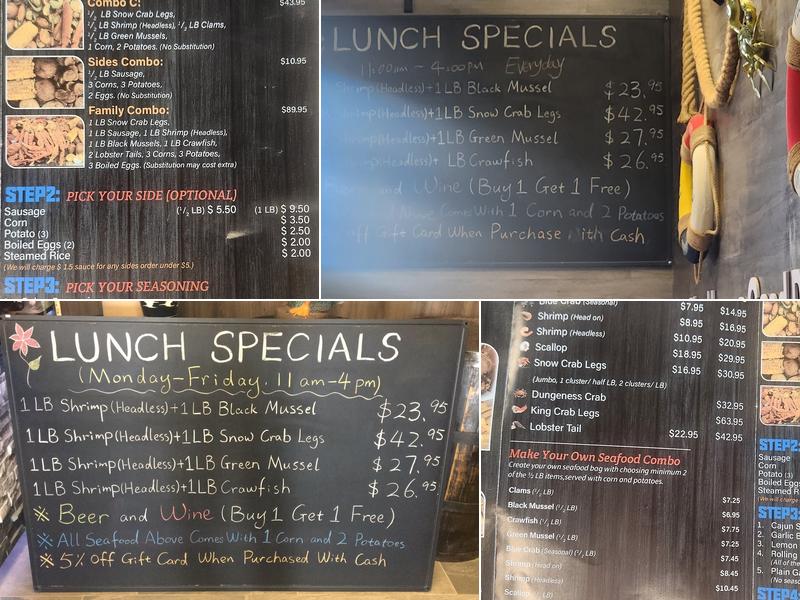 Combo C: $43.95
1/2 LB Snow Crab Legs,
1/2 LB Shrimp (Headless), 1/2 LB Clams,
1/2 LB Green Mussels,
1 Corn, 2 Potatoes. (No Substitution)
Sides Combo: $10.95
1/2 LB Sausage,
3 Corns, 3 Potatoes,
2 Eggs. (No Substitution)
Family Combo: $89.95
1 LB Snow Crab Legs,
1 LB Sausage, 1 LB Shrimp (Headless),
1 LB Black Mussels, 1 LB Crawfish,
2 Lobster Tails, 3 Corns, 3 Potatoes,
3 Boiled Eggs. (Substitution may cost extra)
STEP2: PICK YOUR SIDE (OPTIONAL)
Sausage (1/2 LB) $ 5.50 (1 LB) $ 9.50
Corn $ 3.50
Potato (3) $ 2.50
Boiled Eggs (2) $ 2.00
Steamed Rice $ 2.00
(We will charge $ 1.5 sauce for any sides order under $5.)
STEP3: PICK YOUR SEASONING
LUNCH SPECIALS
11:00am - 4:00pm Everyday
Shrimp(Headless)+1LB Black Mussel $23.95
(Headless)+1LB Snow Crab Legs $42.95
(Headless)+1LB Green Mussel $27.95
(Headless)+ LB Crawfish $26.95
and Wine (Buy 1 Get 1 Free)
Above Comes With 1 Corn and 2 Potatoes
off Gift Card When Purchase with Cash
LUNCH SPECIALS
(Monday-Friday, 11am-4pm)
1 LB Shrimp(Headless)+1LB Black Mussel $23.95
1 LB Shrimp(Headless)+1LB Snow Crab Legs $42.95
1 LB Shrimp(Headless)+1LB Green Mussel $27.95
1 LB Shrimp(Headless)+1LB Crawfish $26.95
※ Beer and Wine (Buy 1 Get 1 Free)
※ All Seafood Above Comes With 1 Corn and 2 Potatoes
※ 5% Off Gift Card When Purchased With Cash
Blue Crab (Seasonal) $7.95 $14.95
Shrimp (Head on) $8.95 $16.95
Shrimp (Headless) $10.95 $20.95
Scallop $18.95 $29.95
Snow Crab Legs $16.95 $30.95
(Jumbo, 1 cluster/ half LB, 2 clusters/ LB)
Dungeness Crab $32.95
King Crab Legs $63.95
Lobster Tail $22.95 $42.95
Make Your Own Seafood Combo
Create your own seafood bag with choosing minimum 2
of the ½ LB items,served with corn and potatoes.
Clams (1/2 LB) $7.25
Black Mussel (1/2 LB) $6.95
Crawfish (1/2 LB) $7.75
Green Mussel (1/2 LB) $7.25
Blue Crab (Seasonal) (1/2 LB) $7.45
Shrimp (Head on) $8.45
Shrimp (Headless) $10.45
Scallop
STEP2
Sausage
Corn
Potato
Boiled Eggs
Steamed
STEP3:
1. Cajun S
2. Garlic B
3. Lemon
4. Rolling
(All of the
5. Plain Ga
(No seas
STEP4